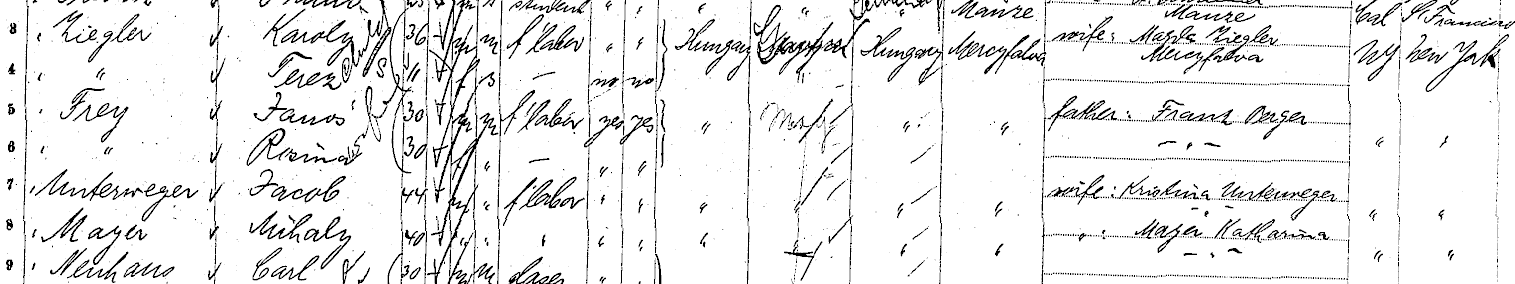 student " " " " Manze
3 Ziegler Karoly 36 m m f'labor " " Hungary Hungary Mercyfalva wife: Magda Ziegler Manze Cal S. Francisco
4 " " Terez 11 f s — no no " Mercyfalva NY New York
5 Frey Janos 30 m m f'labor yes yes " " " father: Frank Berger
6 " " Rosina 30 f " — " " — " — " "
7 Unterweger Jacob 44 m " f'labor " " " " " " wife: Kristina Unterweger " "
8 Mayer Mihaly 40 " " " " " " " " " ": Majer Katharina
9 Neuhaus Carl 30 m m " " — " — " "